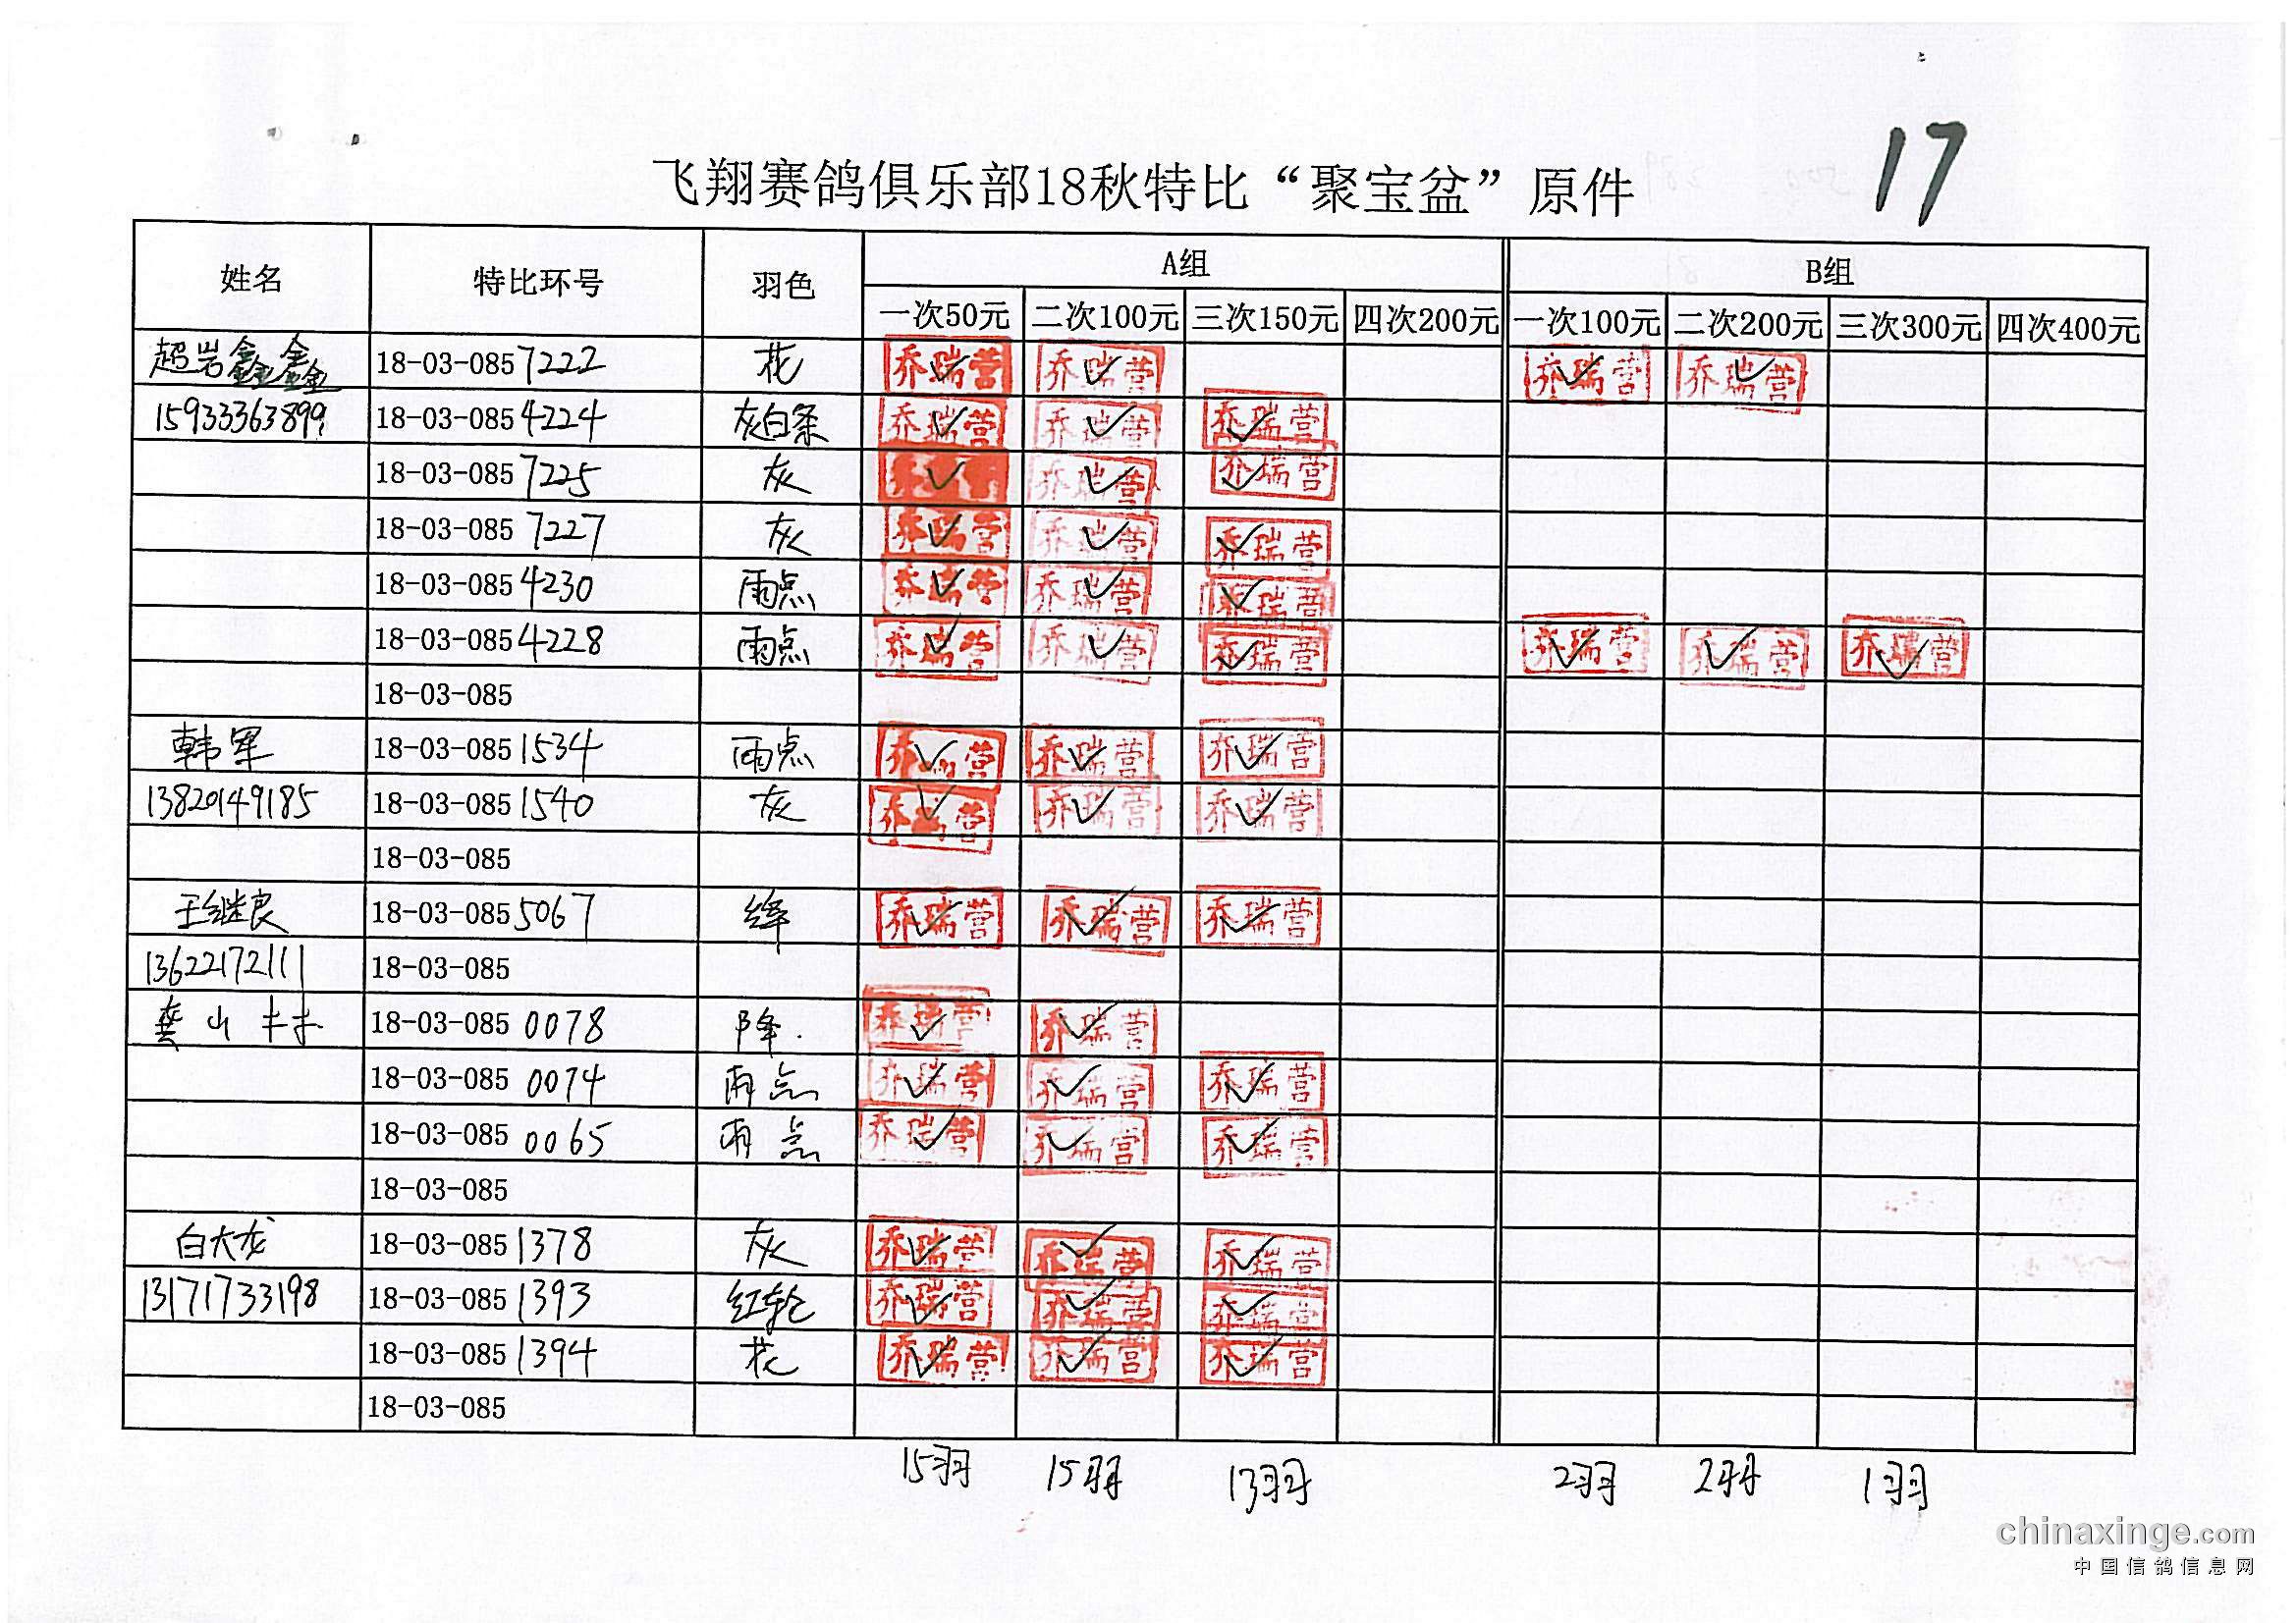 17
飞翔赛鸽俱乐部18秋特比“聚宝盆”原件
姓名 特比环号 羽色 A组 B组
一次50元 二次100元 三次150元 四次200元 一次100元 二次200元 三次300元 四次400元
超岩鑫鑫 18-03-085 7222 花 乔瑞营 ✓ 乔瑞营 ✓ 乔瑞营 ✓ 乔瑞营 ✓
15933363899 18-03-085 4224 灰白条 乔瑞营 ✓ 乔瑞营 ✓ 乔瑞营 ✓
18-03-085 7225 灰 ✓ 乔瑞营 ✓ 乔瑞营 ✓
18-03-085 7227 灰 乔瑞营 ✓ 乔瑞营 ✓ 乔瑞营 ✓
18-03-085 4230 雨点 乔瑞营 ✓ 乔瑞营 ✓ 乔瑞营 ✓
18-03-085 4228 雨点 乔瑞营 ✓ 乔瑞营 ✓ 乔瑞营 ✓ 乔瑞营 ✓ 乔瑞营 ✓ 乔瑞营 ✓
18-03-085
韩军 18-03-085 1534 雨点 乔瑞营 ✓ 乔瑞营 ✓ 乔瑞营 ✓
13820149185 18-03-085 1540 灰 乔瑞营 ✓ 乔瑞营 ✓ 乔瑞营 ✓
18-03-085
王继良 18-03-085 5067 绛 乔瑞营 ✓ 乔瑞营 ✓ 乔瑞营 ✓
13622172111 18-03-085
龚山 18-03-085 0078 降. 乔瑞营 ✓ 乔瑞营 ✓
18-03-085 0074 雨点 乔瑞营 ✓ 乔瑞营 ✓ 乔瑞营 ✓
18-03-085 0065 雨点 乔瑞营 ✓ 乔瑞营 ✓ 乔瑞营 ✓
18-03-085
白大龙 18-03-085 1378 灰 乔瑞营 ✓ 乔瑞营 ✓ 乔瑞营 ✓
13171733198 18-03-085 1393 红轮 乔瑞营 ✓ 乔瑞营 ✓ 乔瑞营 ✓
18-03-085 1394 花 乔瑞营 ✓ 乔瑞营 ✓ 乔瑞营 ✓
18-03-085
15羽 15羽 13羽 2羽 2羽 1羽
chinaxinge.com
中国信鸽信息网